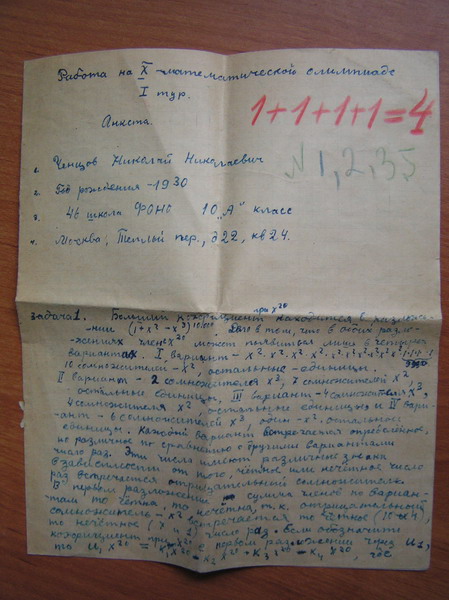 Работа на X математической олимпиаде
I тур.
1+1+1+1=4
Анкета.
N 1,2,3,5
1. Ченцов Николай Николаевич
2. Год рождения - 1930
3. 46 школа ФОНО 10 "А" класс
4. Москва, Теплый пер., д 22, кв 24.
Задача 1. Больший коэффициент при x²⁰ находится в разложе-
нии (1+x²-x³) Дело в том, что в обоих разло-
жениях член x²⁰ может появиться лишь в четырех
вариантах. I вариант -
10 сомножителей - x², остальные - единицы.
II вариант - 2 сомножителя x³, 7 сомножителей x²,
остальные единицы, III вариант - 4 сомножителя x³,
4 сомножителя x², остальные единицы и IV вари-
ант - 6 сомножителей x³, один - x², остальные
единицы. Каждый вариант встречается определённое,
но различное по сравнению с другими вариантами
число раз. Эти числа имеют различные знаки
в зависимости от того, чётное или нечётное число
раз встречается отрицательный сомножитель.
В первом разложении сумма членов по вариан-
там то чётна то нечётна, т.к. отрицательный
сомножитель - x² встречается то чётное
то нечётное число раз. Если обозначить
коэффициент при x²⁰ в первом разложении через U₁,
то U₁x²⁰ = где